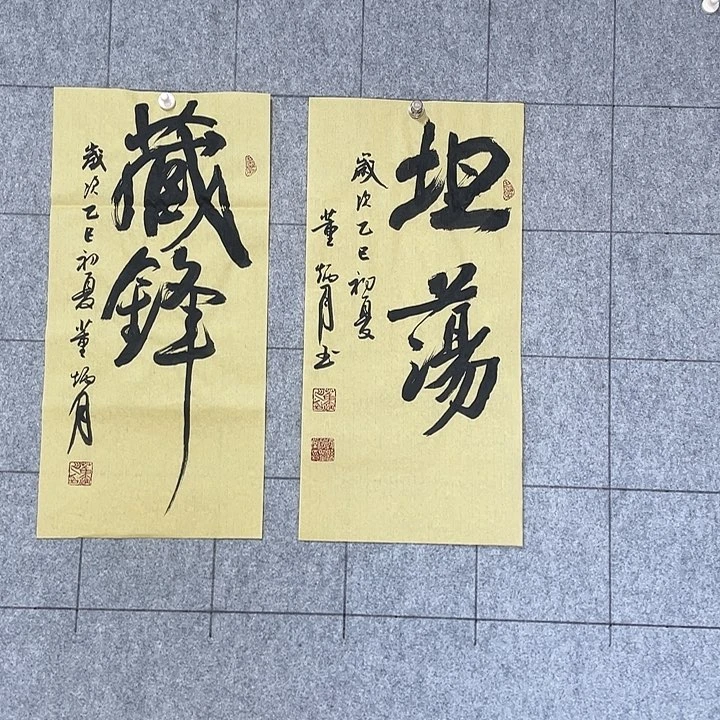 藏鋒
歲次乙巳初夏董炳月
坦蕩
歲次乙巳初夏
董炳月书